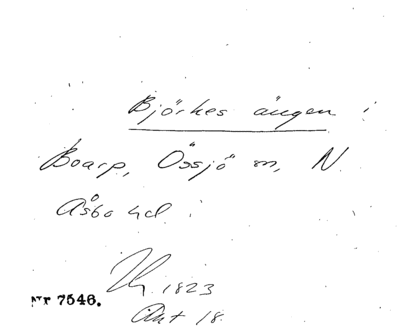 Björkes ängen
Boarp, Össjö sn, N.
Åsbo hd.
1823
Akt 18.
Nr 7546.